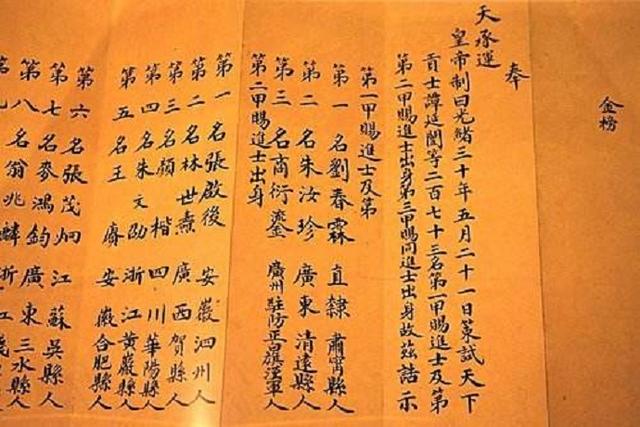 金榜
奉
天承運
皇帝制曰光緒三十年五月二十一日策試天下
貢士譚延闓等二百七十三名第一甲賜進士及第
第二甲賜進士出身第三甲賜同進士出身故茲誥示
第一甲賜進士及第
第一名劉春霖 直隸肅寧縣人
第二名朱汝珍 廣東清遠縣人
第三名商衍鎏 廣州駐防正白旗漢軍人
第二甲賜進士出身
第一名張啟後 安徽泗州人
第二名林世燾 廣西賀縣人
第三名顏楷 四川華陽縣人
第四名朱文劭 浙江黃巖縣人
第五名王賡 安徽合肥縣人
第六名張茂炯 江蘇吳縣人
第七名麥鴻鈞 廣東三水縣人
第八名翁兆麟 浙江